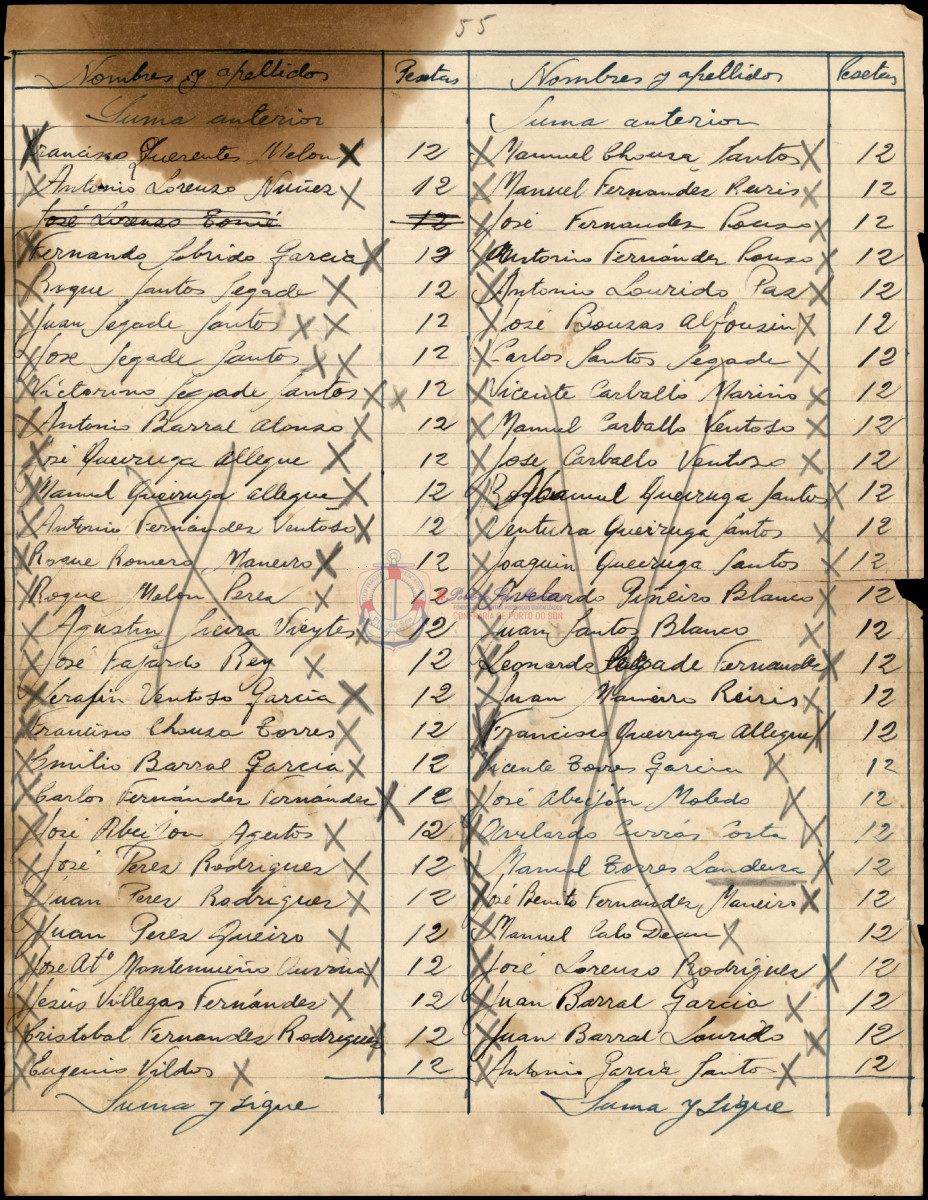 55
Nombres y apellidos Pesetas
Suma anterior
Francisco Querentes Melon 12
Antonio Lorenzo Nuñez 12
José Lorenzo Tomé 12
Fernando Sobrido Garcia 12
Roque Santos Segade 12
Juan Segade Santos 12
Jose Segade Santos 12
Victorino Segade Santos 12
Antonio Barral Alonso 12
José Queiruga Allegue 12
Manuel Queiruga Allegue 12
Antonio Fernández Ventoso 12
Roque Romero Maneiro 12
Roque Melon Perez 12
Agustin Sieira Vieytes 12
José Fajardo Rey 12
Serafin Ventoso García 12
Francisco Chouza Torres 12
Emilio Barral Garcia 12
Carlos Fernández Fernández 12
José Abeijon Ageitos 12
José Perez Rodrigues 12
Juan Perez Rodrigues 12
Juan Perez Queiro 12
Jose Atº 12
Jesús Villegas Fernández 12
Cristobal Fernandez Rodrigues 12
Eugenio Vildos 12
Suma y sigue
Nombres y apellidos Pesetas
Suma anterior
Manuel Chousa Santos 12
Manuel Fernandez Reiris 12
José Fernandez Pouso 12
Antonio Fernández Pouso 12
Antonio Lourido Paz 12
José Bouzas Alfonsin 12
Carlos Santos Segade 12
Vicente Carballo Mariño 12
Manuel Carballo Ventoso 12
Jose Carballo Ventoso 12
Manuel Queiruga Santos 12
Ventura Queiruga Santos 12
Joaquin Queiruga Santos 12
Avelardo Piñeiro Blanco 12
Juan Santos Blanco 12
Leonardo Segade Fernandez 12
Juan Maneiro Reiris 12
Francisco Queiruga Allegue 12
Vicente Torres Garcia 12
José Abeijón Moledo 12
Avelardo Currás Costa 12
Manuel Torres Landeira 12
José Benito Fernández Maneiro 12
Manuel Calo Dean 12
José Lorenzo Rodrigues 12
Juan Barral Garcia 12
Juan Barral Lourido 12
Antonio Garcia Santos 12
Suma y sigue
CONFRARÍA DE PORTO DO SON